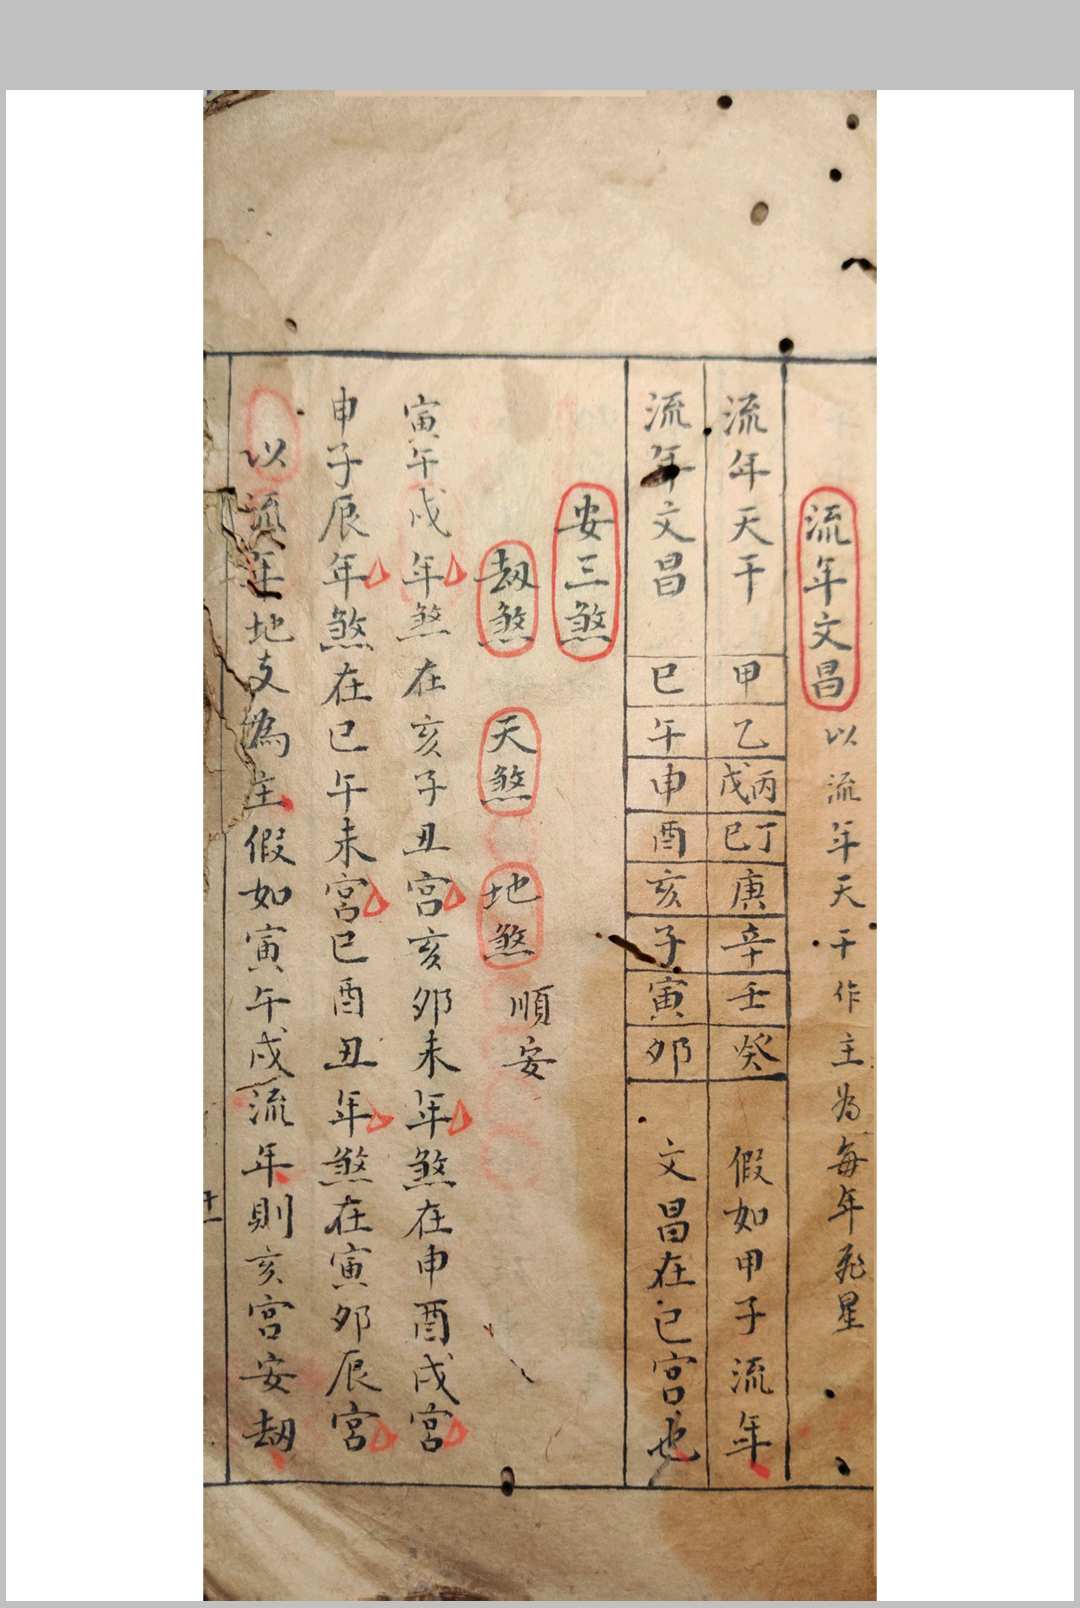 流年文昌 以流年天干作主為每年飛星
流年天干 甲 乙 丙戊 丁己 庚 辛 壬 癸 假如甲子流年
流年文昌 巳 午 申 酉 亥 子 寅 卯 文昌在巳宮也
安三煞
劫煞 天煞 地煞 順安
寅午戌年煞在亥子丑宮亥卯未年煞在申酉戌宮
申子辰年煞在巳午未宮巳酉丑年煞在寅卯辰宮
以流年地支為主假如寅午戌流年則亥宮安劫
十一